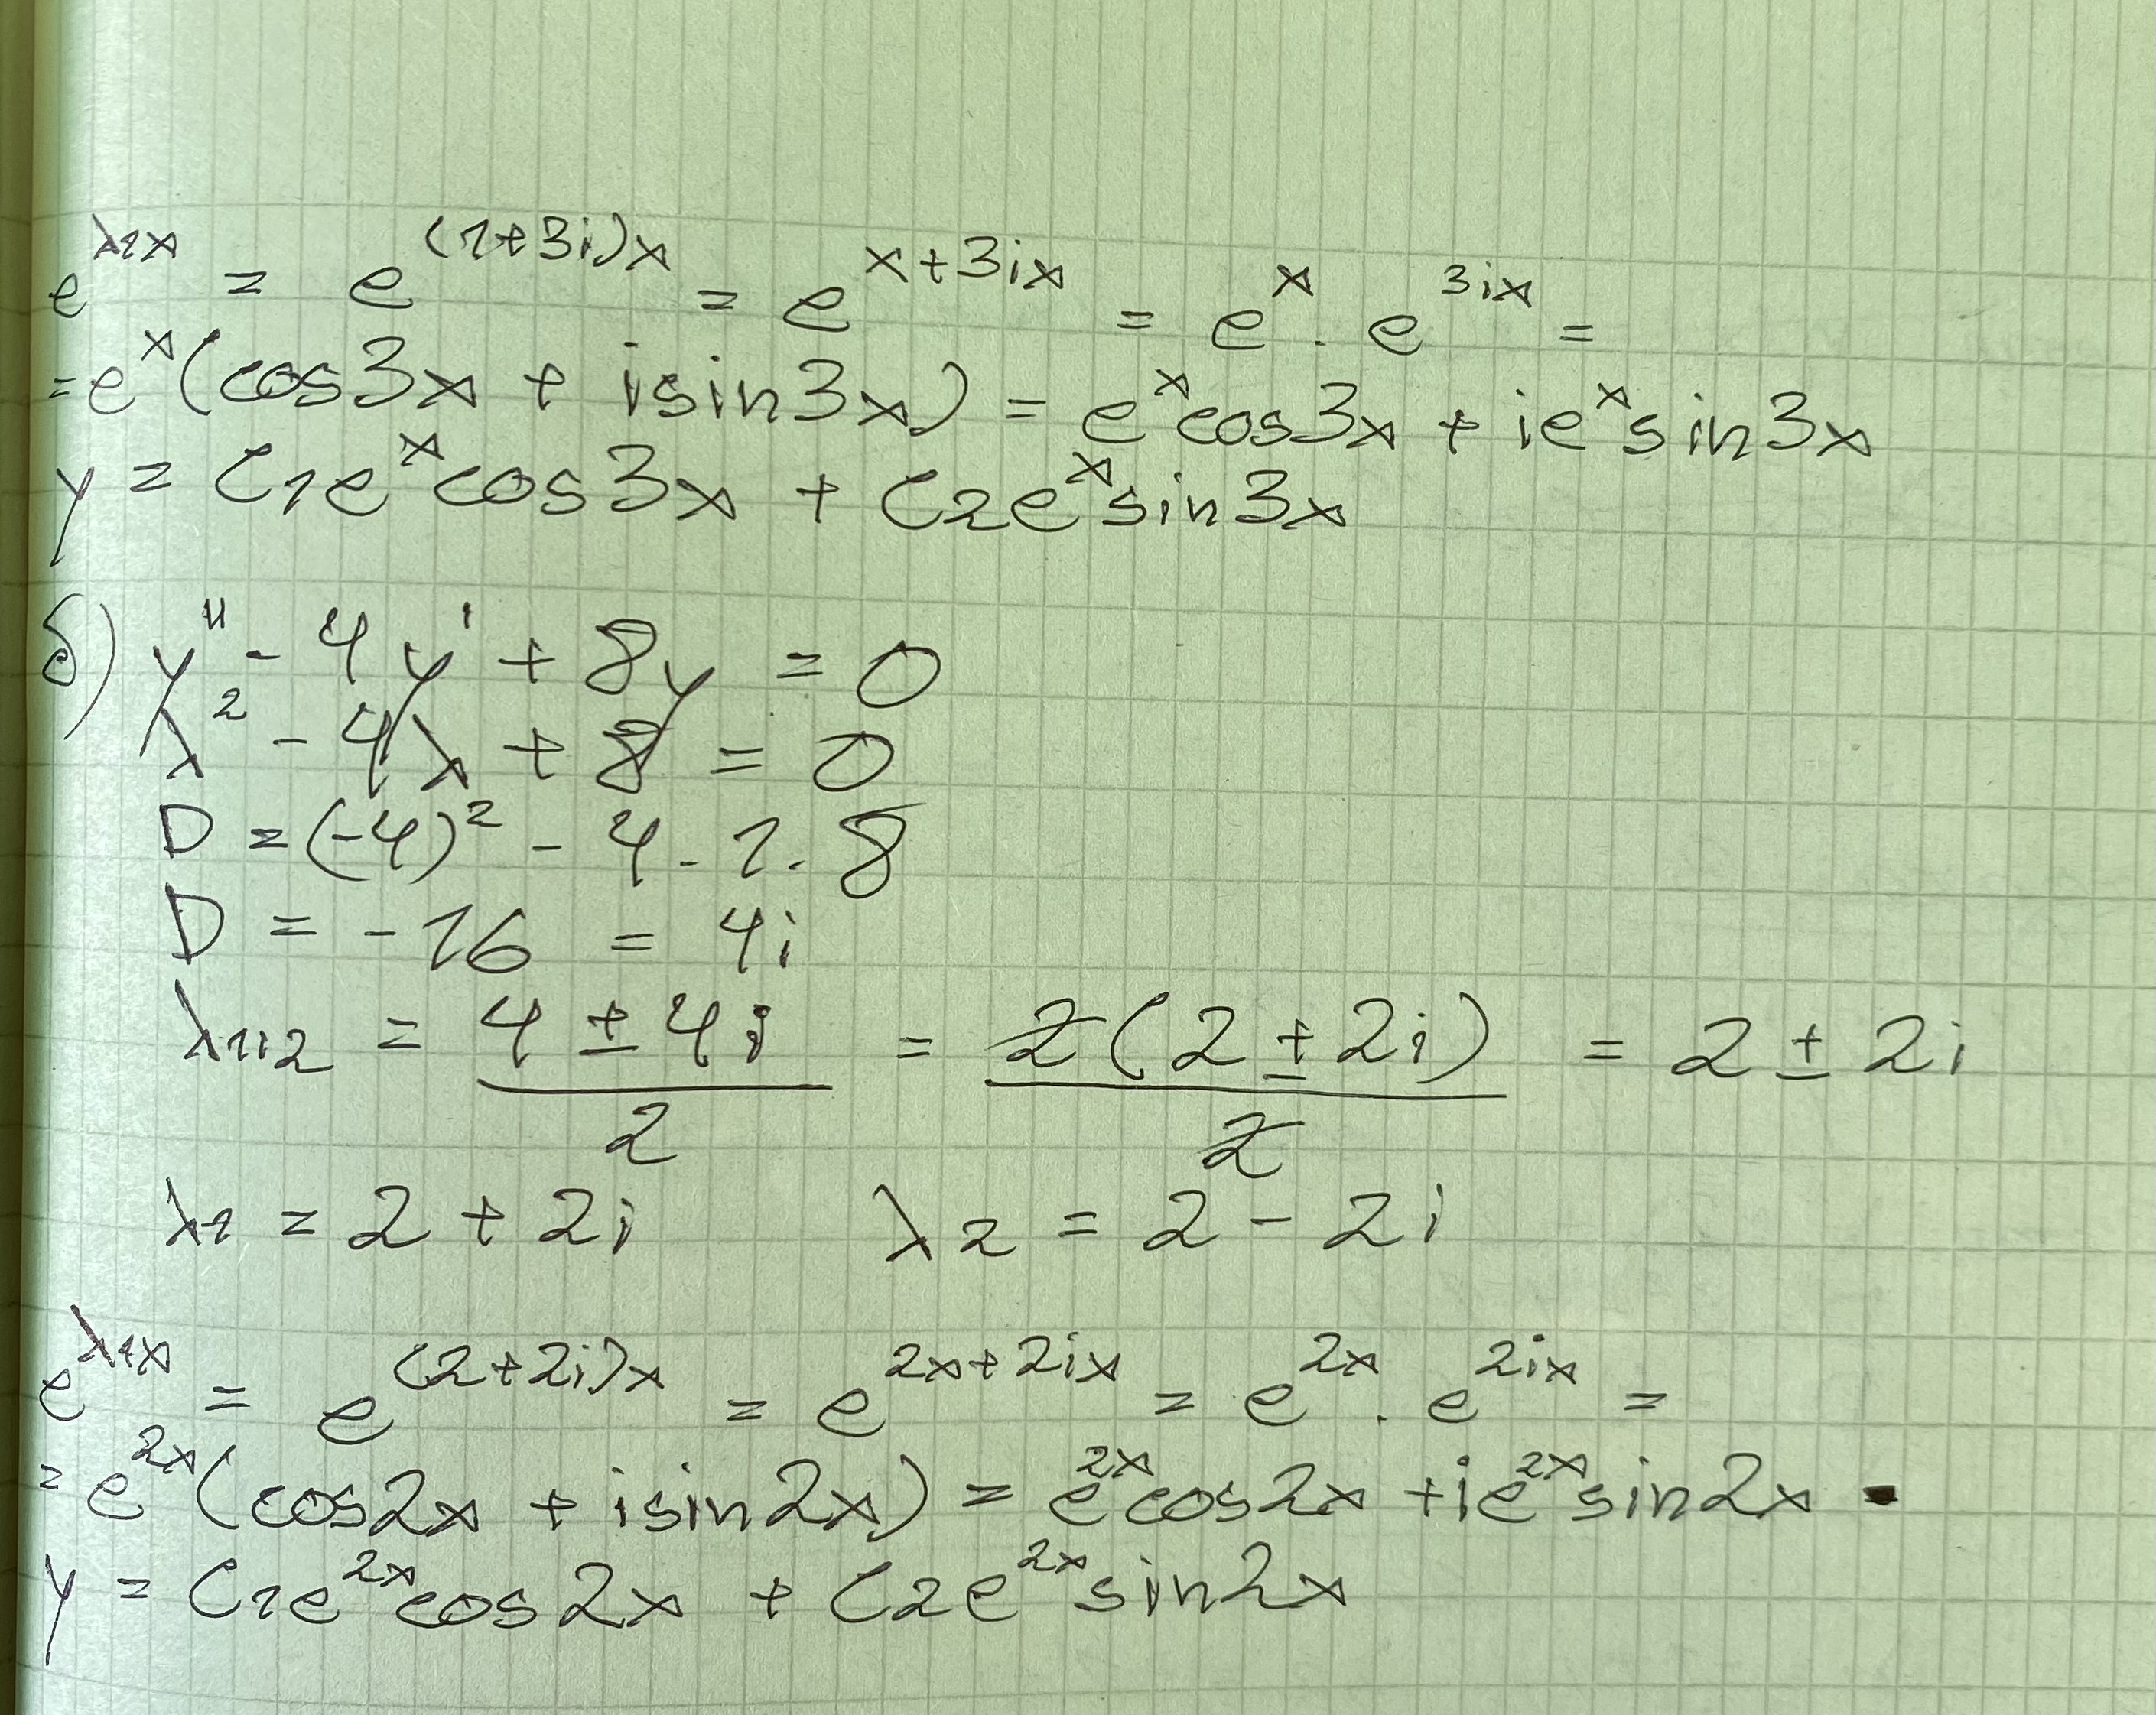 e^{λ₁x} = e^{(1+3i)x} = e^{x+3ix} = e^x · e^{3ix} =
= e^x (cos3x + isin3x) = e^x cos3x + ie^x sin3x
y = C₁e^x cos3x + C₂e^x sin3x
б) y'' - 4y' + 8y = 0
λ² - 4λ + 8 = 0
D = (-4)² - 4 · 1 · 8
D = -16 = 4i
λ₁,₂ = (4 ± 4i)/2 = 2(2 ± 2i)/2 = 2 ± 2i
λ₁ = 2 + 2i λ₂ = 2 - 2i
e^{λ₁x} = e^{(2+2i)x} = e^{2x+2ix} = e^{2x} · e^{2ix} =
= e^{2x} (cos2x + isin2x) = e^{2x} cos2x + ie^{2x} sin2x
y = C₁e^{2x} cos2x + C₂e^{2x} sin2x